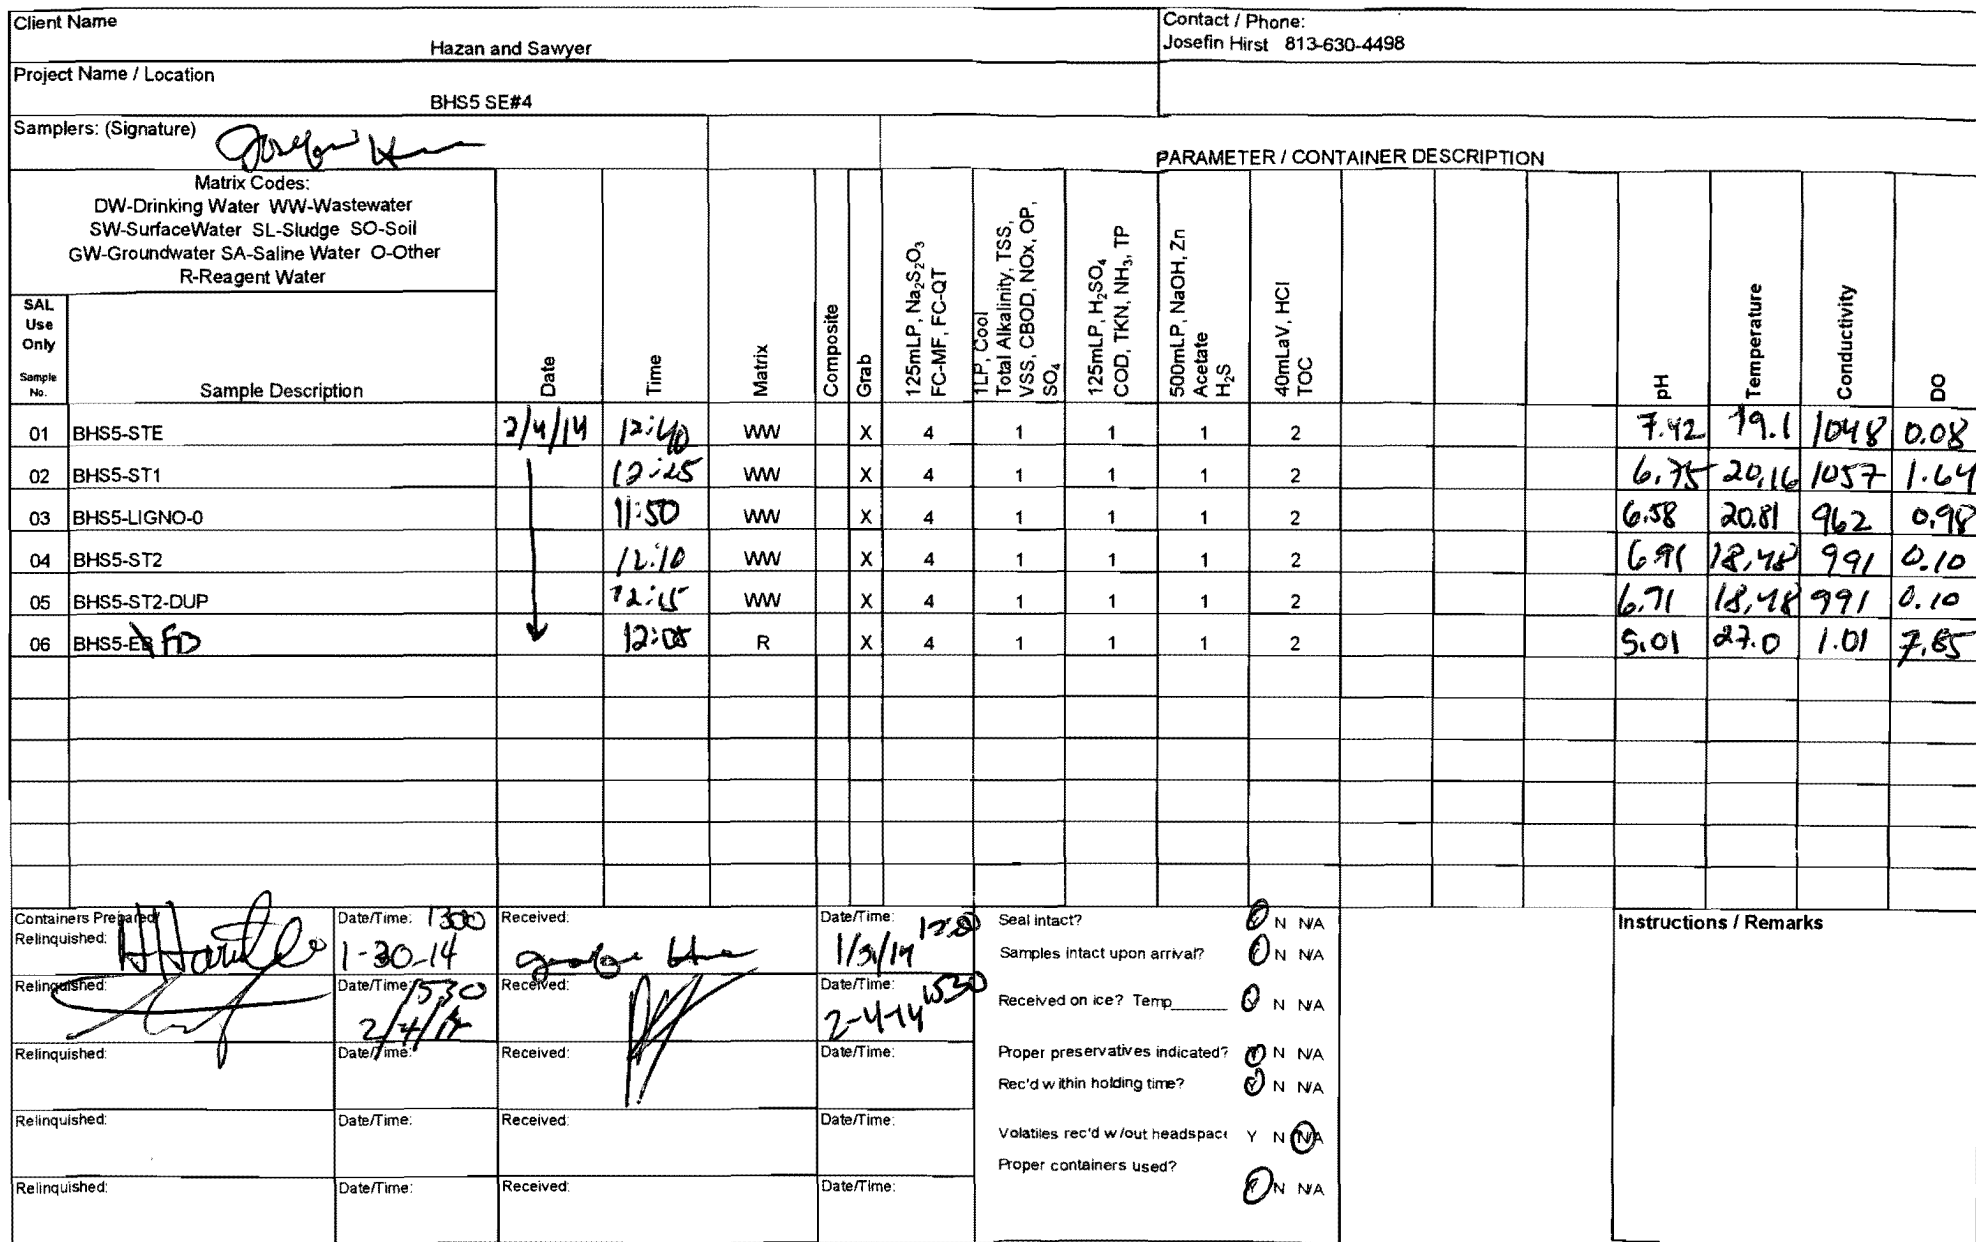 Client Name
Hazan and Sawyer
Contact / Phone:
Josefin Hirst 813-630-4498
Project Name / Location
BHS5 SE#4
Samplers: (Signature)
PARAMETER / CONTAINER DESCRIPTION
Matrix Codes:
DW-Drinking Water WW-Wastewater
SW-SurfaceWater SL-Sludge SO-Soil
GW-Groundwater SA-Saline Water O-Other
R-Reagent Water
SAL
Use
Only
Sample
No.
Sample Description
Date
Time
Matrix
Composite
Grab
125mLP, Na₂S₂O₃
FC-MF, FC-QT
1LP, Cool
Total Alkalinity, TSS,
VSS, CBOD, NOx, OP,
SO₄
125mLP, H₂SO₄
COD, TKN, NH₃, TP
500mLP, NaOH, Zn
Acetate
H₂S
40mLaV, HCl
TOC
pH
Temperature
Conductivity
DO
01 BHS5-STE 2/4/14 12:40 WW X 4 1 1 1 2 7.42 19.1 1048 0.08
02 BHS5-ST1 12:25 WW X 4 1 1 1 2 6.75 20.16 1057 1.64
03 BHS5-LIGNO-0 11:50 WW X 4 1 1 1 2 6.58 20.81 962 0.98
04 BHS5-ST2 12:10 WW X 4 1 1 1 2 18.48 991 0.10
05 BHS5-ST2-DUP 12:15 WW X 4 1 1 1 2 6.71 18.48 991 0.10
06 BHS5-EB FD 12:05 R X 4 1 1 1 2 5.01 27.0 1.01 7.85
Containers Prepared/
Relinquished:
Date/Time: 1300
1-30-14
Received:
Date/Time:
Seal intact? Y N N/A
Samples intact upon arrival? Y N N/A
Instructions / Remarks
Relinquished:
Date/Time: 1530
2/4/14
Received:
Date/Time: 1530
2-4-14
Received on ice? Temp______ Y N N/A
Relinquished:
Date/Time:
Received:
Date/Time:
Proper preservatives indicated? Y N N/A
Rec'd within holding time? Y N N/A
Relinquished:
Date/Time:
Received:
Date/Time:
Volatiles rec'd w/out headspace Y N N/A
Proper containers used? Y N N/A
Relinquished:
Date/Time:
Received:
Date/Time: